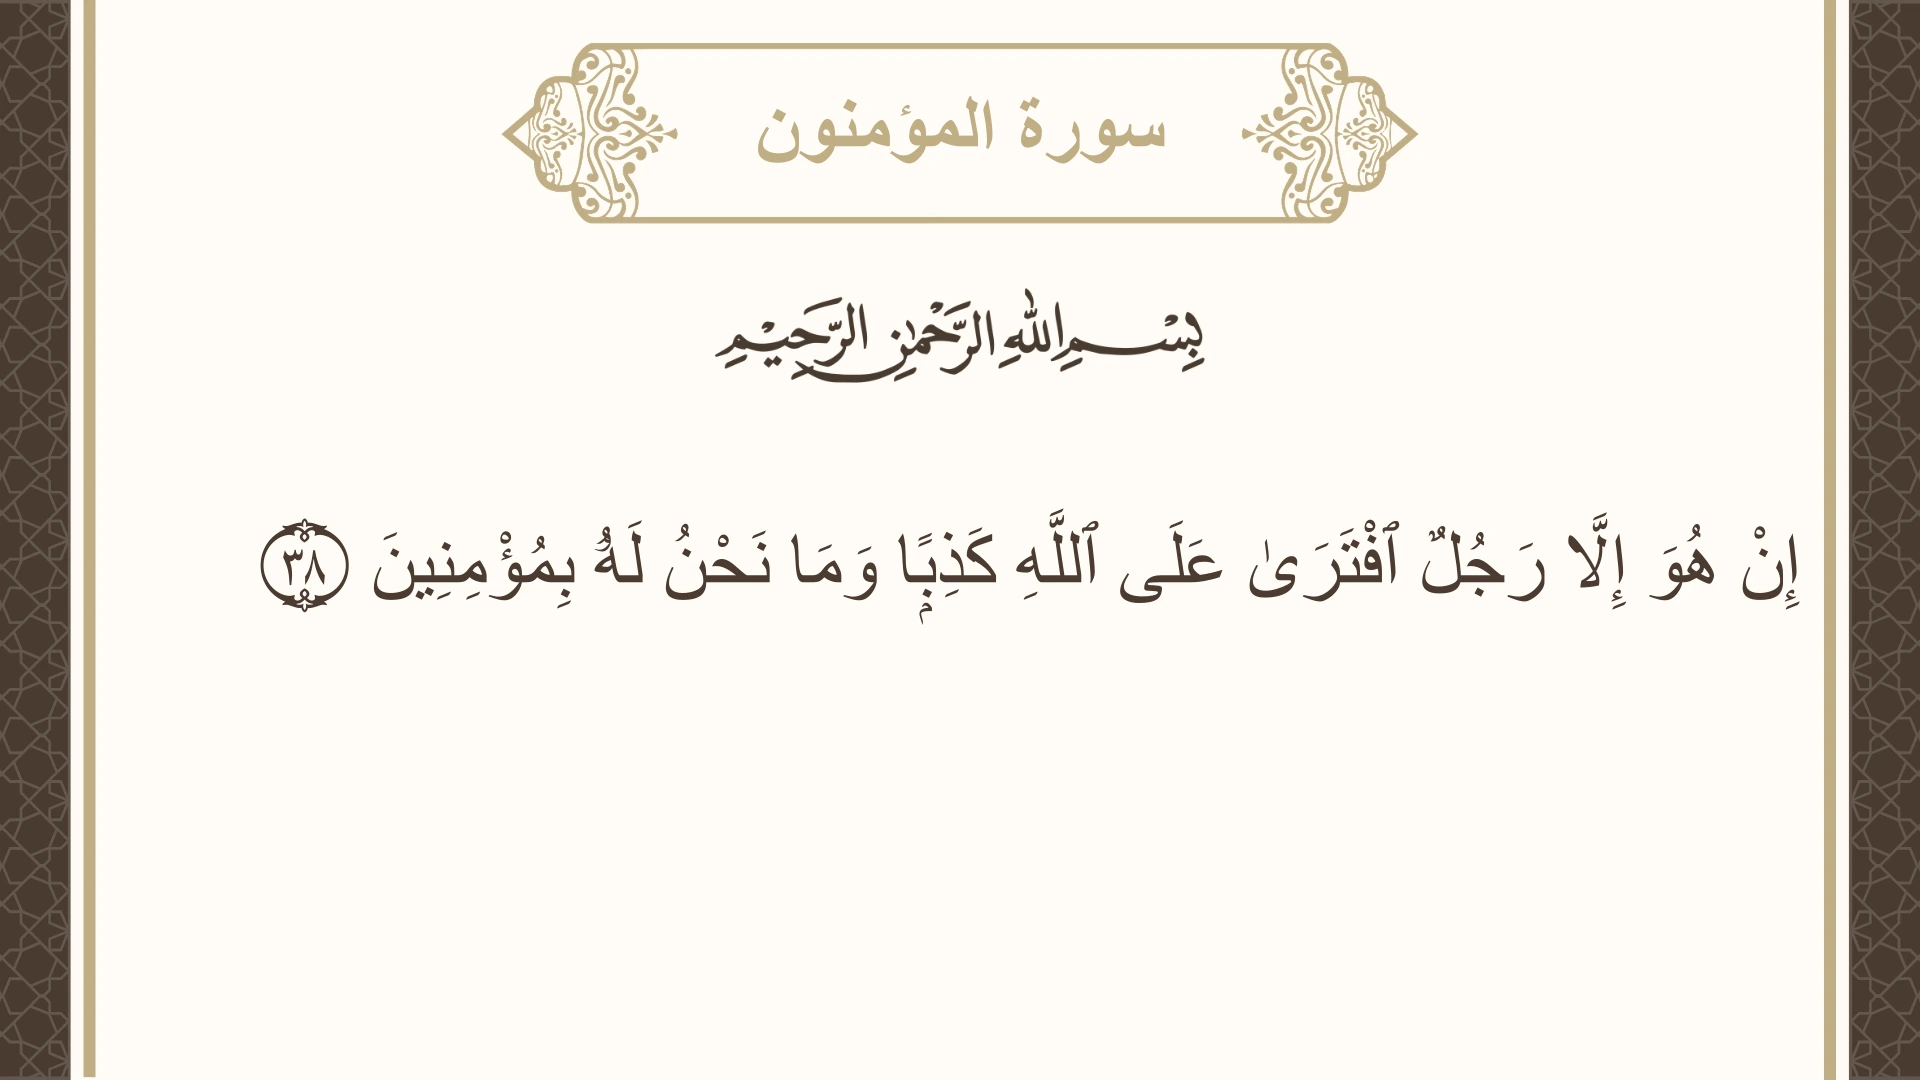 سورة المؤمنون
بِسْمِ اللهِ الرَّحْمٰنِ الرَّحِيْمِ
إِنْ هُوَ إِلَّا رَجُلٌ ٱفْتَرَىٰ عَلَى ٱللَّهِ كَذِبًۭا وَمَا نَحْنُ لَهُۥ بِمُؤْمِنِينَ ٣٨